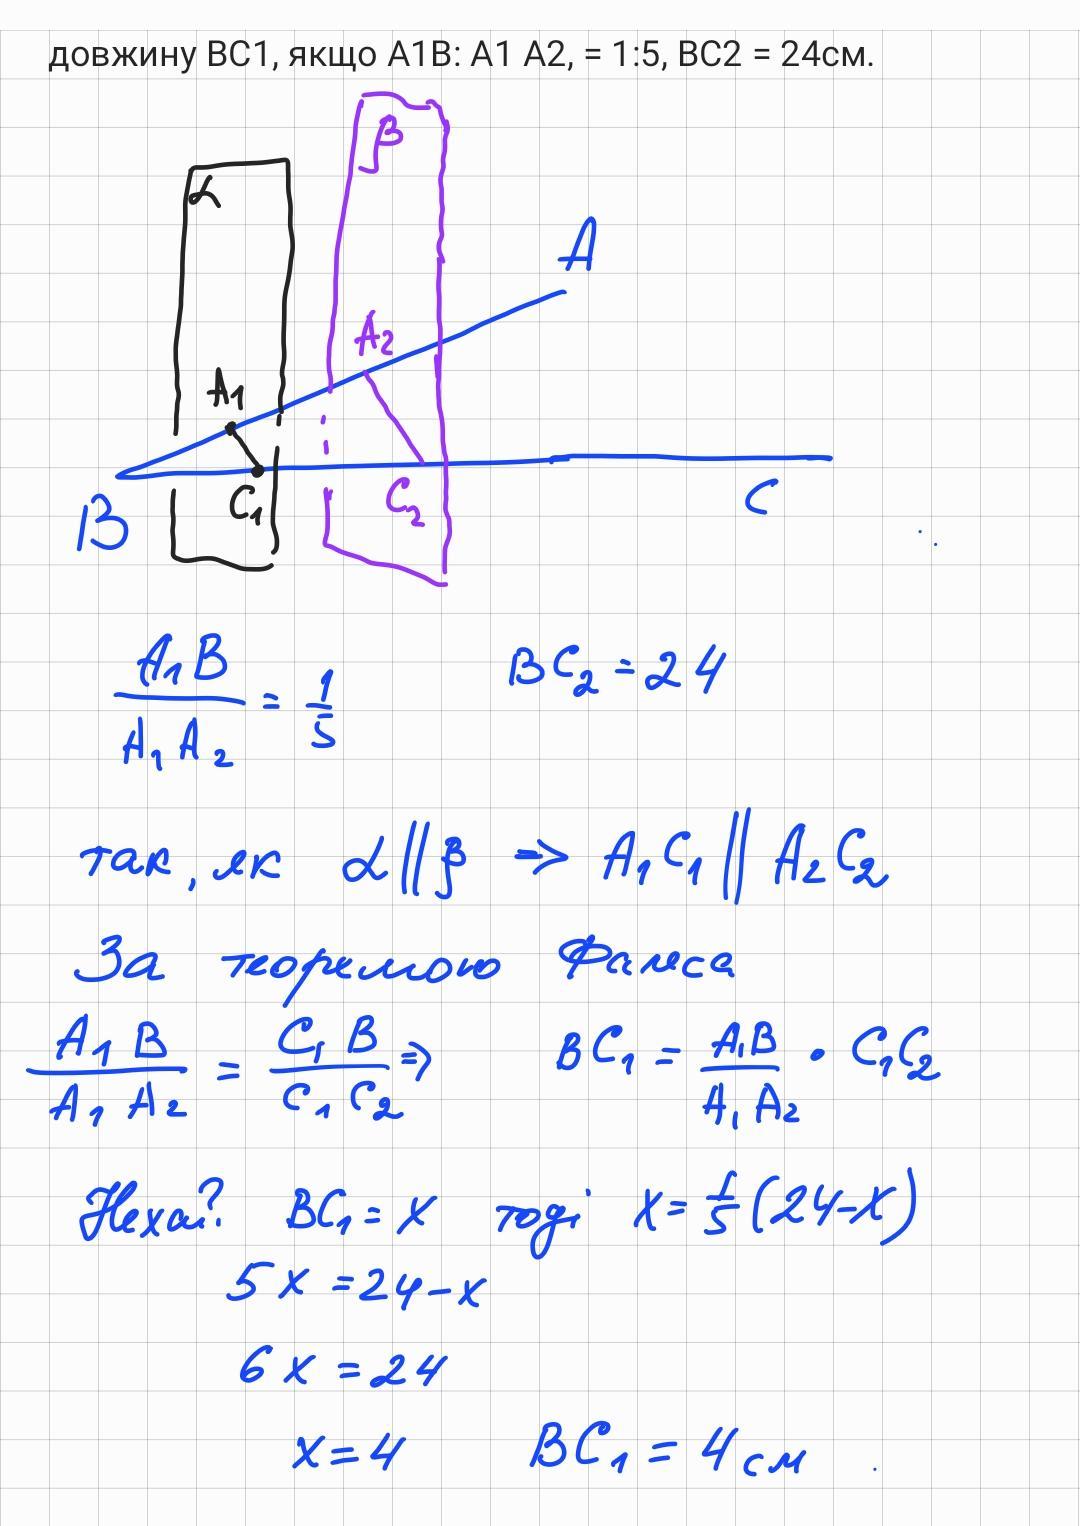 довжину BC1, якщо A1B: A1 A2, = 1:5, BC2 = 24см.
β
α
A
A₂
A₁
C₁
C₂
C
B
A₁B / A₁A₂ = 1/5 BC₂ = 24
так, як α || β => A₁C₁ || A₂C₂
За теоремою Фалеса
A₁B / A₁A₂ = C₁B / C₁C₂ => BC₁ = A₁B / A₁A₂ · C₁C₂
Нехай BC₁ = x тоді x = 1/5 (24-x)
5x = 24-x
6x = 24
x = 4 BC₁ = 4 см